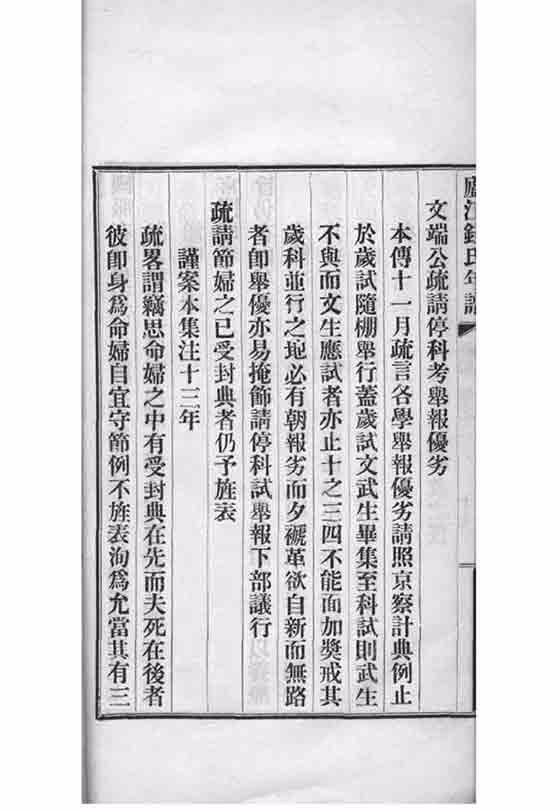 廬江錢氏年譜
文端公疏請停科考舉報優劣
本傳十一月疏言各學舉報優劣請照京察計典例止
於歲試隨棚舉行蓋歲試文武生畢集至科試則武生
不與而文生應試者亦止十之三四不能面加獎戒其
歲科並行之地必有朝報劣而夕褫革欲自新而無路
者卽舉優亦易掩飾請停科試舉報下部議行
疏請節婦之已受封典者仍予旌表
謹案本集注十三年
疏畧謂竊思命婦之中有受封典在先而夫死在後者
彼卽身爲命婦自宜守節例不旌表洵爲允當其有三